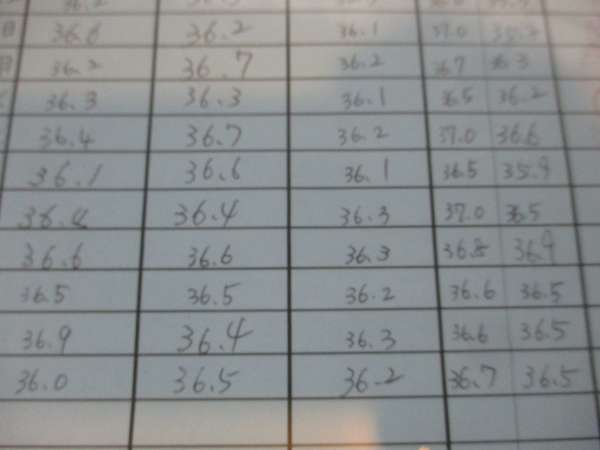 36.2
36.6 36.2 36.1 37.0
36.2 36.7 36.2 36.7 36.3
36.3 36.3 36.1 36.5 36.2
36.4 36.7 36.2 37.0 36.6
36.1 36.6 36.1 36.5 35.9
36.4 36.4 36.3 37.0 36.5
36.6 36.6 36.3 36.8 36.9
36.5 36.5 36.2 36.6 36.5
36.9 36.4 36.3 36.6 36.5
36.0 36.5 36.2 36.7 36.5